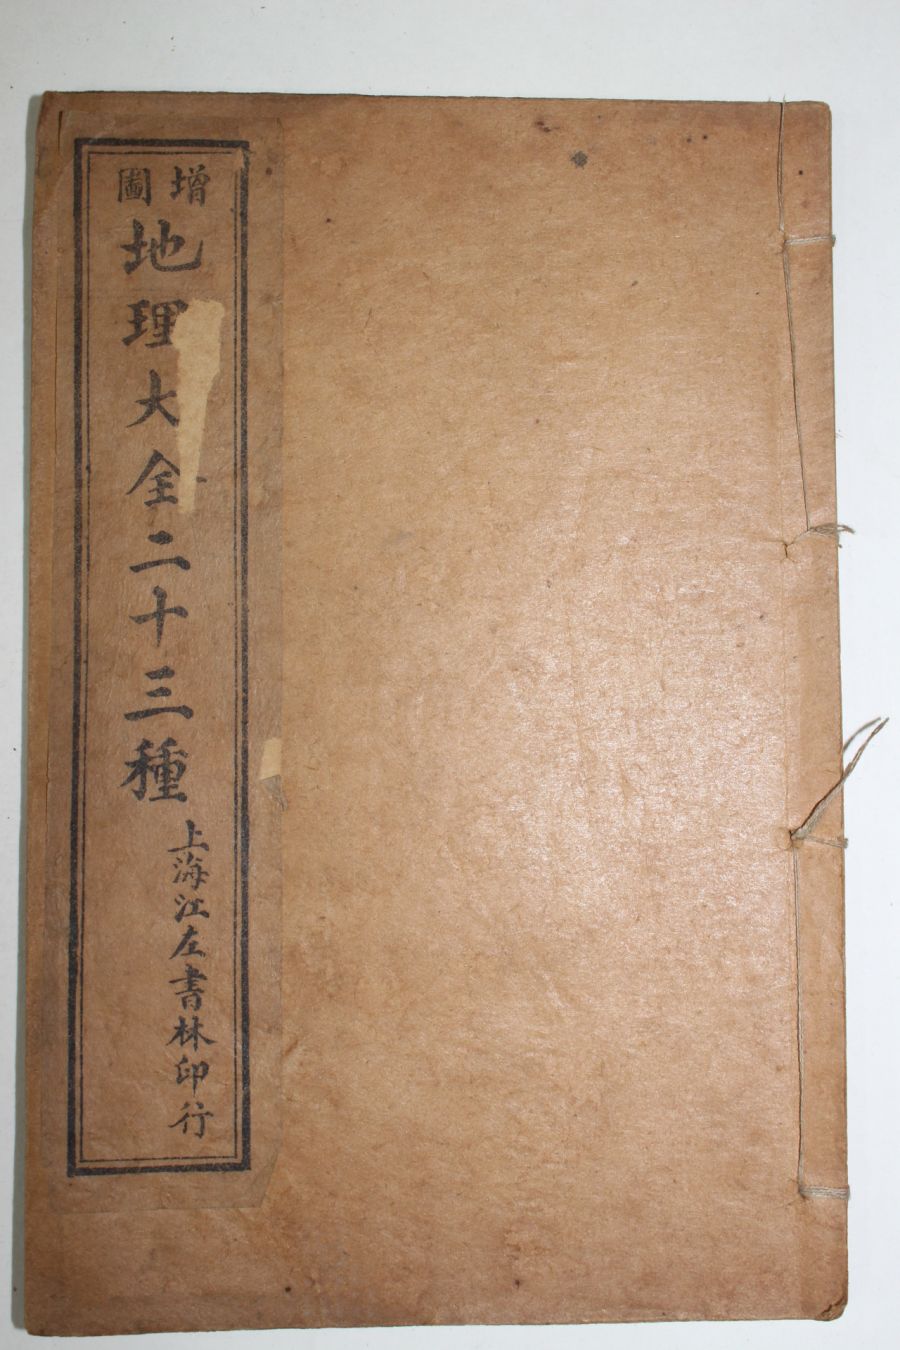 增圖
地理大全二十三種
上海江左書林印行